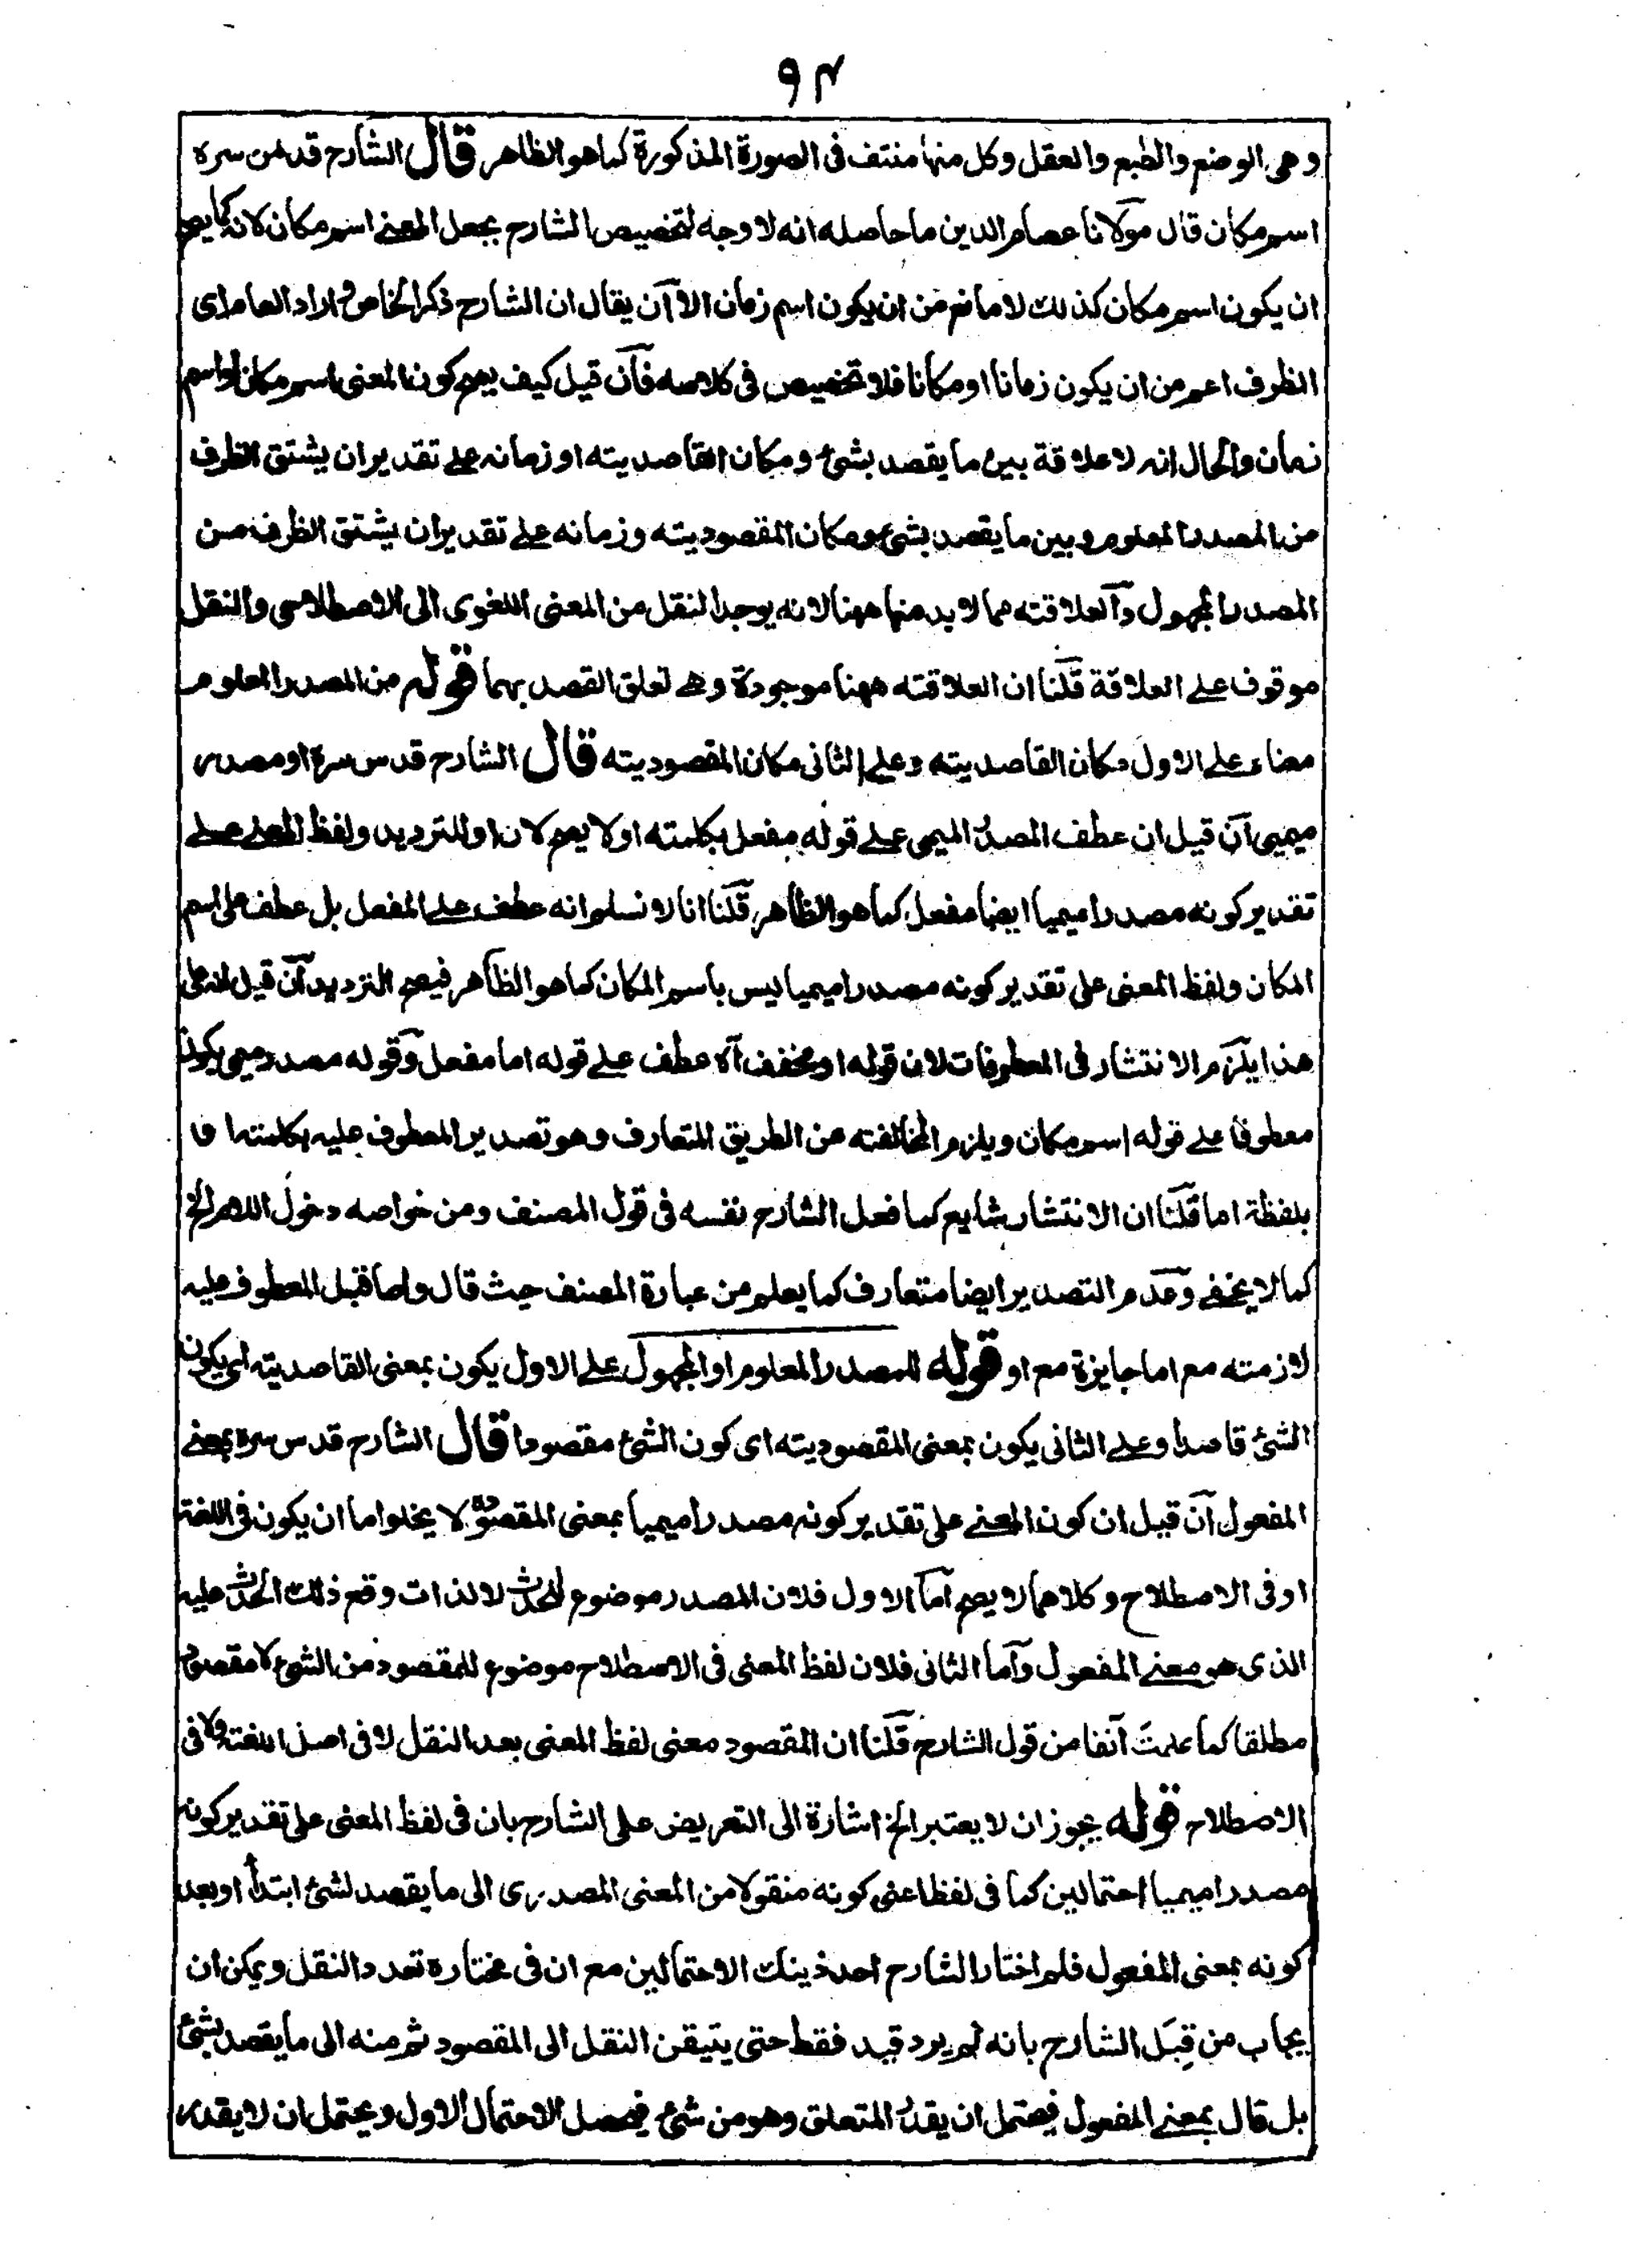 ٩٣
وهى الوضع والطبع والعقل وكل منها منتف فى الصورة المذكورة كما هو الظاهر قال الشارح قدس سره
اسم مكان قال مولانا عصام الدين ما حاصله انه لا وجه لتخصيص الشارح بجعل المعنے اسم مكان لانه كما يصح
ان يكون اسم مكان كذلك لا مانع من ان يكون اسم زمان الا آن يقال ان الشارح ذكر الخاص و اراد العام اى
الظرف اعم من ان يكون زمانا او مكانا فلا تخصيص فى كلامه فآن قيل كيف يصح كون المعنى اسم مكان او اسم
زمان والحال انه لا علاقة بين ما يقصد بشئ و مكان القاصديته او زمانه علے تقدير ان يشتق الظرف
من المصدر المعلوم و بين ما يقصد بشئ و مكان المقصوديته وزمانه علے تقدير ان يشتق الظرف من
المصدر المجهول وآلعلاقته مما لا بد منها ههنا لانه يوجد النقل من المعنى اللغوى الى الاصطلاحى والنقل
موقوف علے العلاقة قلنا ان العلاقته ههنا موجودة وهے تعلق القصد بهما قوله من المصدر المعلوم
معناه علے الاول مكان القاصديته وعلے الثانى مكان المقصوديته قال الشارح قدس سره او مصدر
ميمى آن قيل ان عطف المصدر الميمى علے قوله مفعل بكلمته او لا يصح لان او للترديد ولفظ المعنے علے
تقدير كونه مصدرا ميميا ايضا مفعل كما هو الظاهر قلنا انا لا نسلم انه عطف علے المفعل بل عطف على اسم
المكان ولفظ المعنى على تقدير كونه مصدرا ميميا ليس باسم المكان كما هو الظاهر فيصح الترديد آن قيل انه على
هذا يلزم الانتشار فى المعطوفات لان قوله او مخفف آه عطف علے قوله اما مفعل وقوله مصدر ميمى يكون
معطوفا علے قوله اسم مكان ويلزم المخالفته عن الطريق المتعارف وهو تصدير المعطوف عليه بكلمته اما
بلفظة اما قلنا ان الانتشار شايع كما فعل الشارح نفسه فى قول المصنف ومن خواصه دخول اللام الخ
كما لا يخفے وعدم التصدير ايضا متعارف كما يعلم من عبارة المصنف حيث قال واما قبل المعطوف عليه
لازمته مع اما جايزة مع او قوله المصدر المعلوم او المجهول علے الاول يكون بمعنى القاصديته اى يكون
الشئ قاصدا وعلے الثانى يكون بمعنى المقصوديته اى كون الشئ مقصودا قال الشارح قدس سره بمعنے
المفعول آن قيل ان كون المعنے على تقدير كونه مصدرا ميميا بمعنى المقصود لا يخلو اما ان يكون فى اللغته
او فى الاصطلاح وكلاهما لا يصح آما الاول فلان المصدر موضوع للحدث لا لذات وقع ذلك الحدث عليه
الذى هو معنے المفعول وآما الثانى فلان لفظ المعنى فى الاصطلاح موضوع للمقصود من الشئ لا مقصود
مطلقا كما علمت آنفا من قول الشارح قلنا ان المقصود معنى لفظ المعنى بعد النقل لا فى اصل اللغته ولا فى
الاصطلاح قوله يجوز ان لا يعتبر الخ اشارة الى التعريض على الشارح بان فى لفظ المعنى على تقدير كونه
مصدرا ميميا احتمالين كما فى لفظ اعنى كونه منقولا من المعنى المصدرى الى ما يقصد لشئ ابتداً او بعد
كونه بمعنى المفعول فلم اختار الشارح احد ذينك الاحتمالين مع ان فى مختاره تعدد النقل ويمكن ان
يجاب من قِبَل الشارح بانه لم يرد قيد فقط حتى يتيقن النقل الى المقصود ثم منه الى ما يقصد بشئ
بل قال بمعنے المفعول فيحتمل ان يقدر المتعلق وهو من شئ فيحصل الاحتمال الاول ويحتمل ان لا يقدر